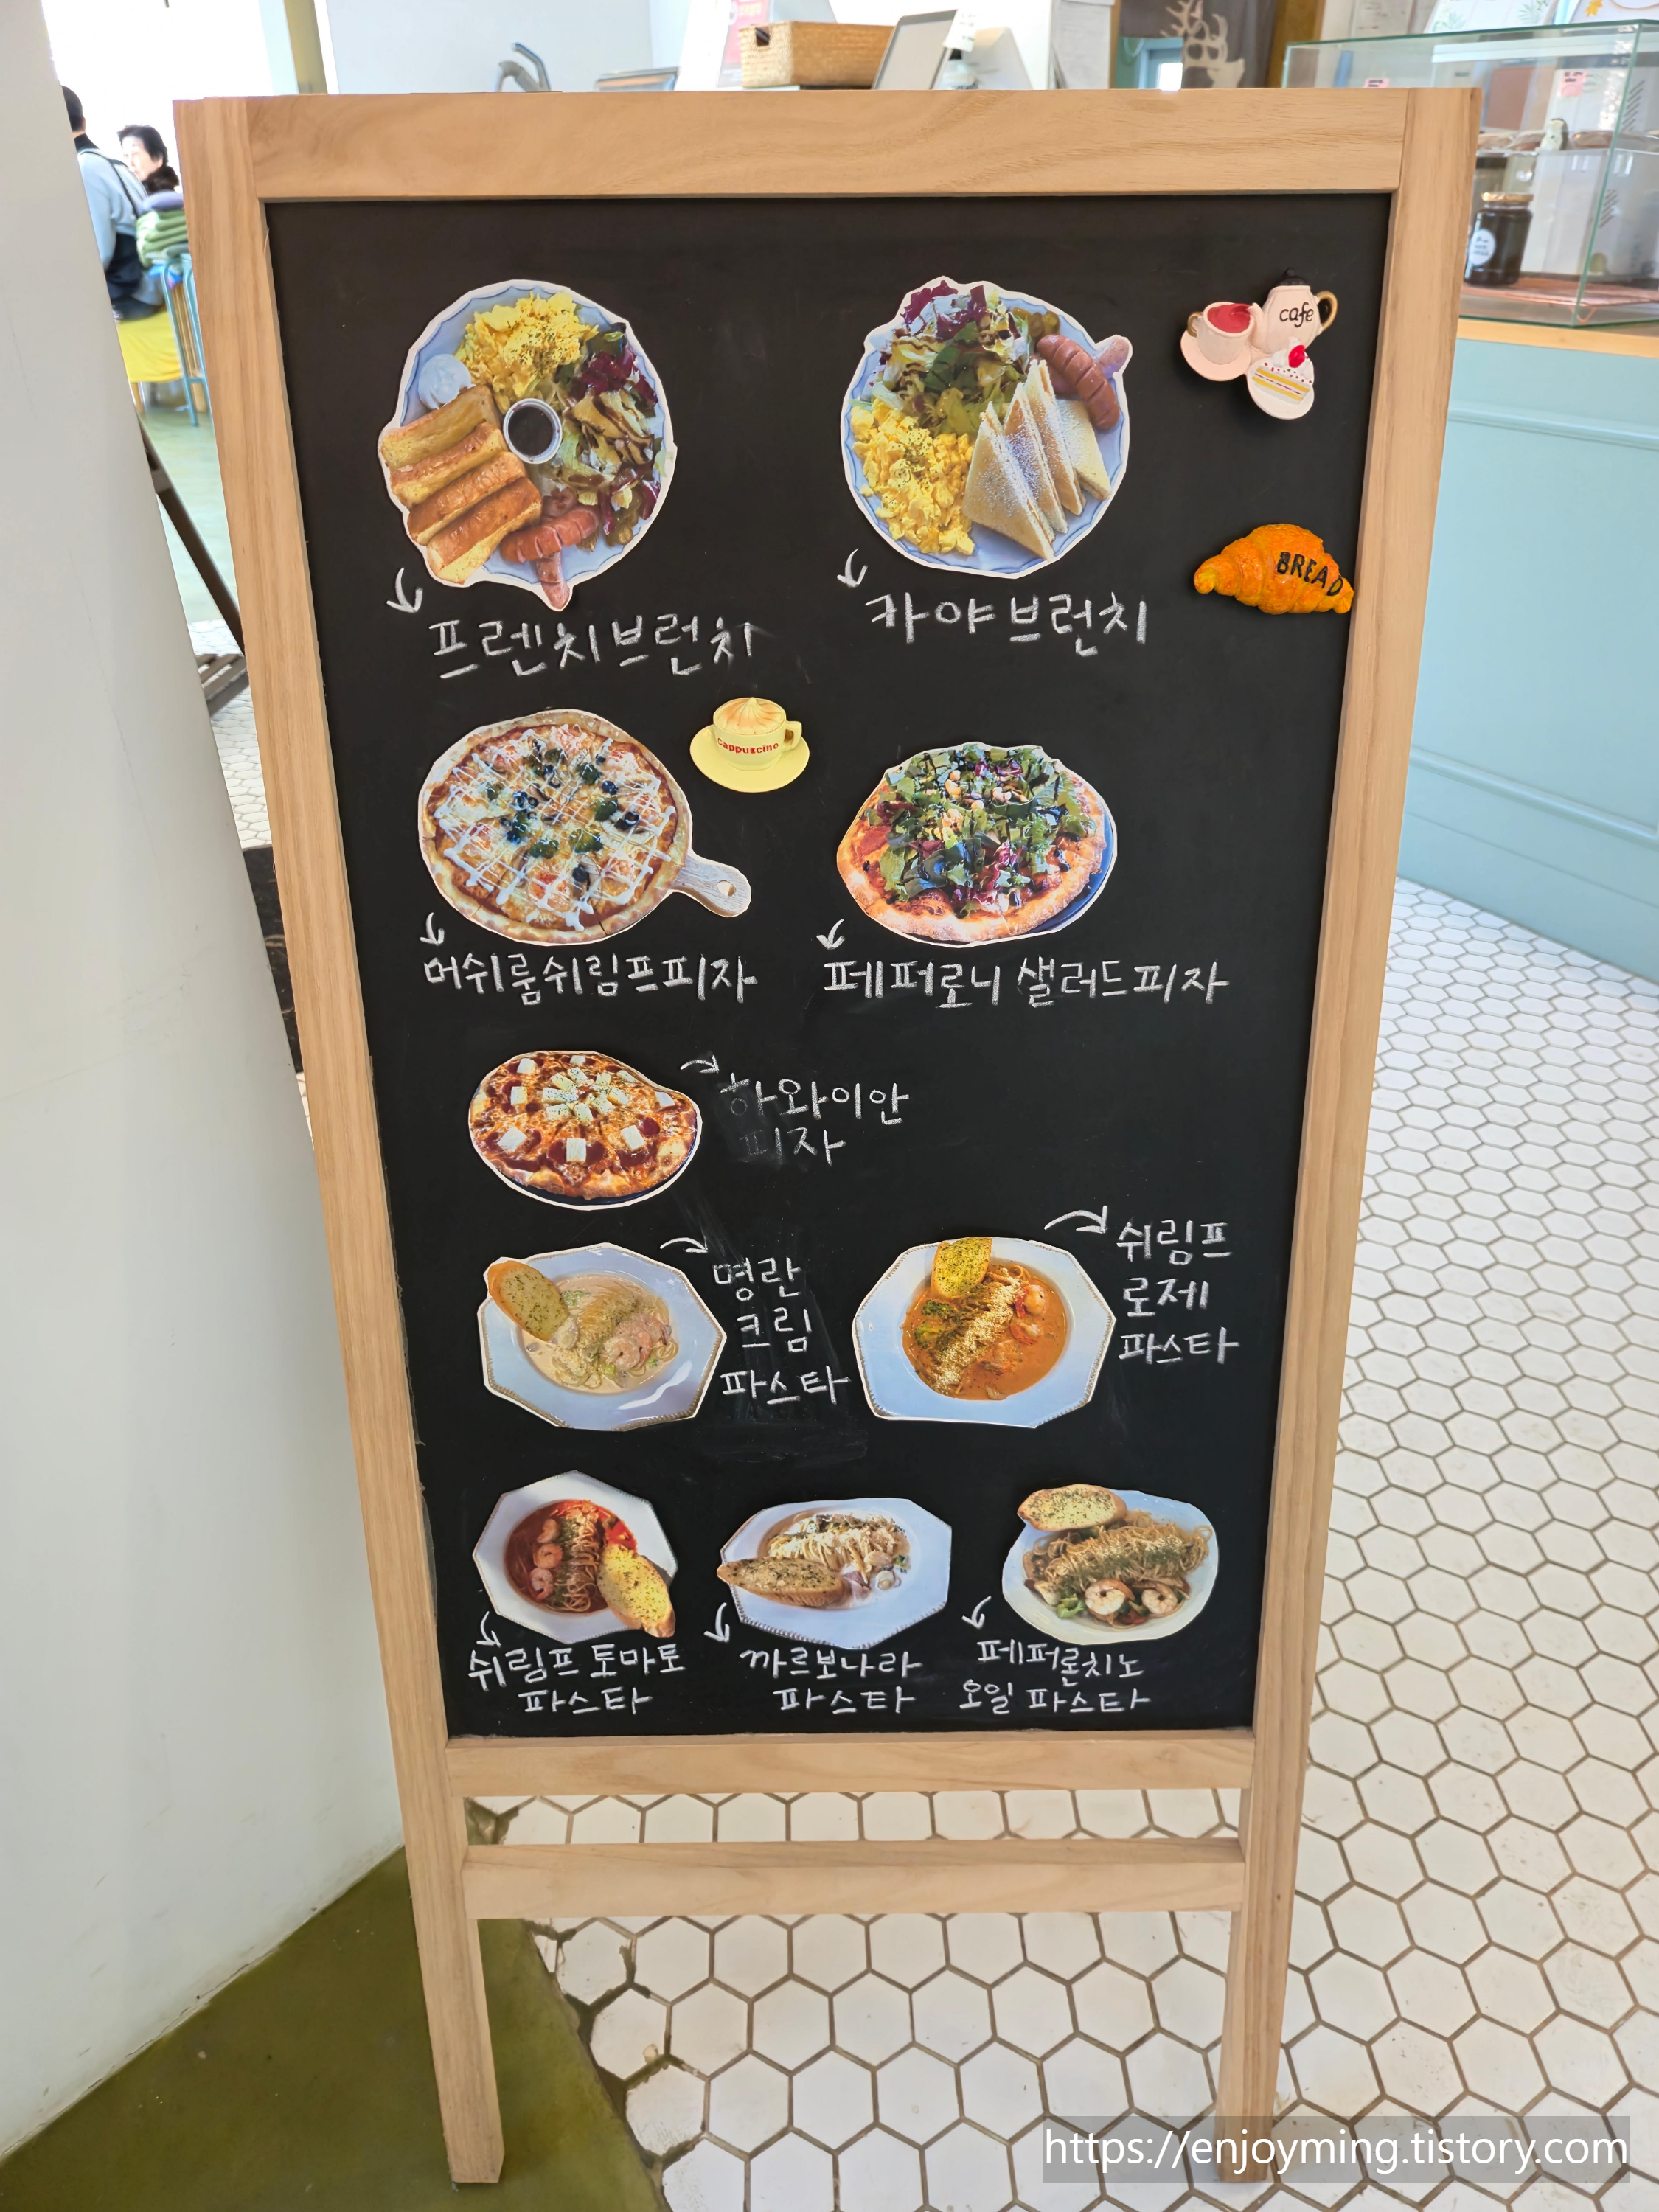 cafe
BREAD
프렌치브런치
카야브런치
cappuccino
머쉬룸쉬림프피자
페퍼로니 샐러드피자
하와이안
피자
명란
크림
파스타
쉬림프
로제
파스타
쉬림프 토마토
파스타
까르보나라
파스타
페퍼론치노
오일 파스타
https://enjoyming.tistory.com